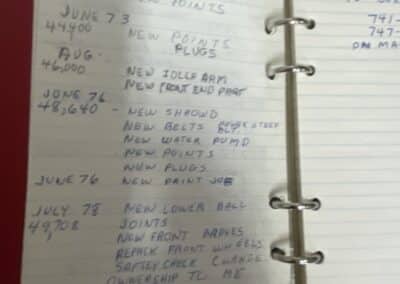 NEW POINTS
JUNE 73
44,900 NEW POINTS
PLUGS
AUG.
46,000 NEW IDLE ARM
NEW FRONT END PART
JUNE 76
48,640 - NEW SHROWD
NEW BELTS POWER STEER
BLT.
NEW WATER PUMP
NEW POINTS
NEW PLUGS
JUNE 76 NEW PAINT JOB
JULY 78 NEW LOWER BALL
49,708 JOINTS
NEW FRONT BRAKES
REPACK FRONT WHEELS
SAFTEY CHECK CHANGE
OWNERSHIP TO ME
741-
747-